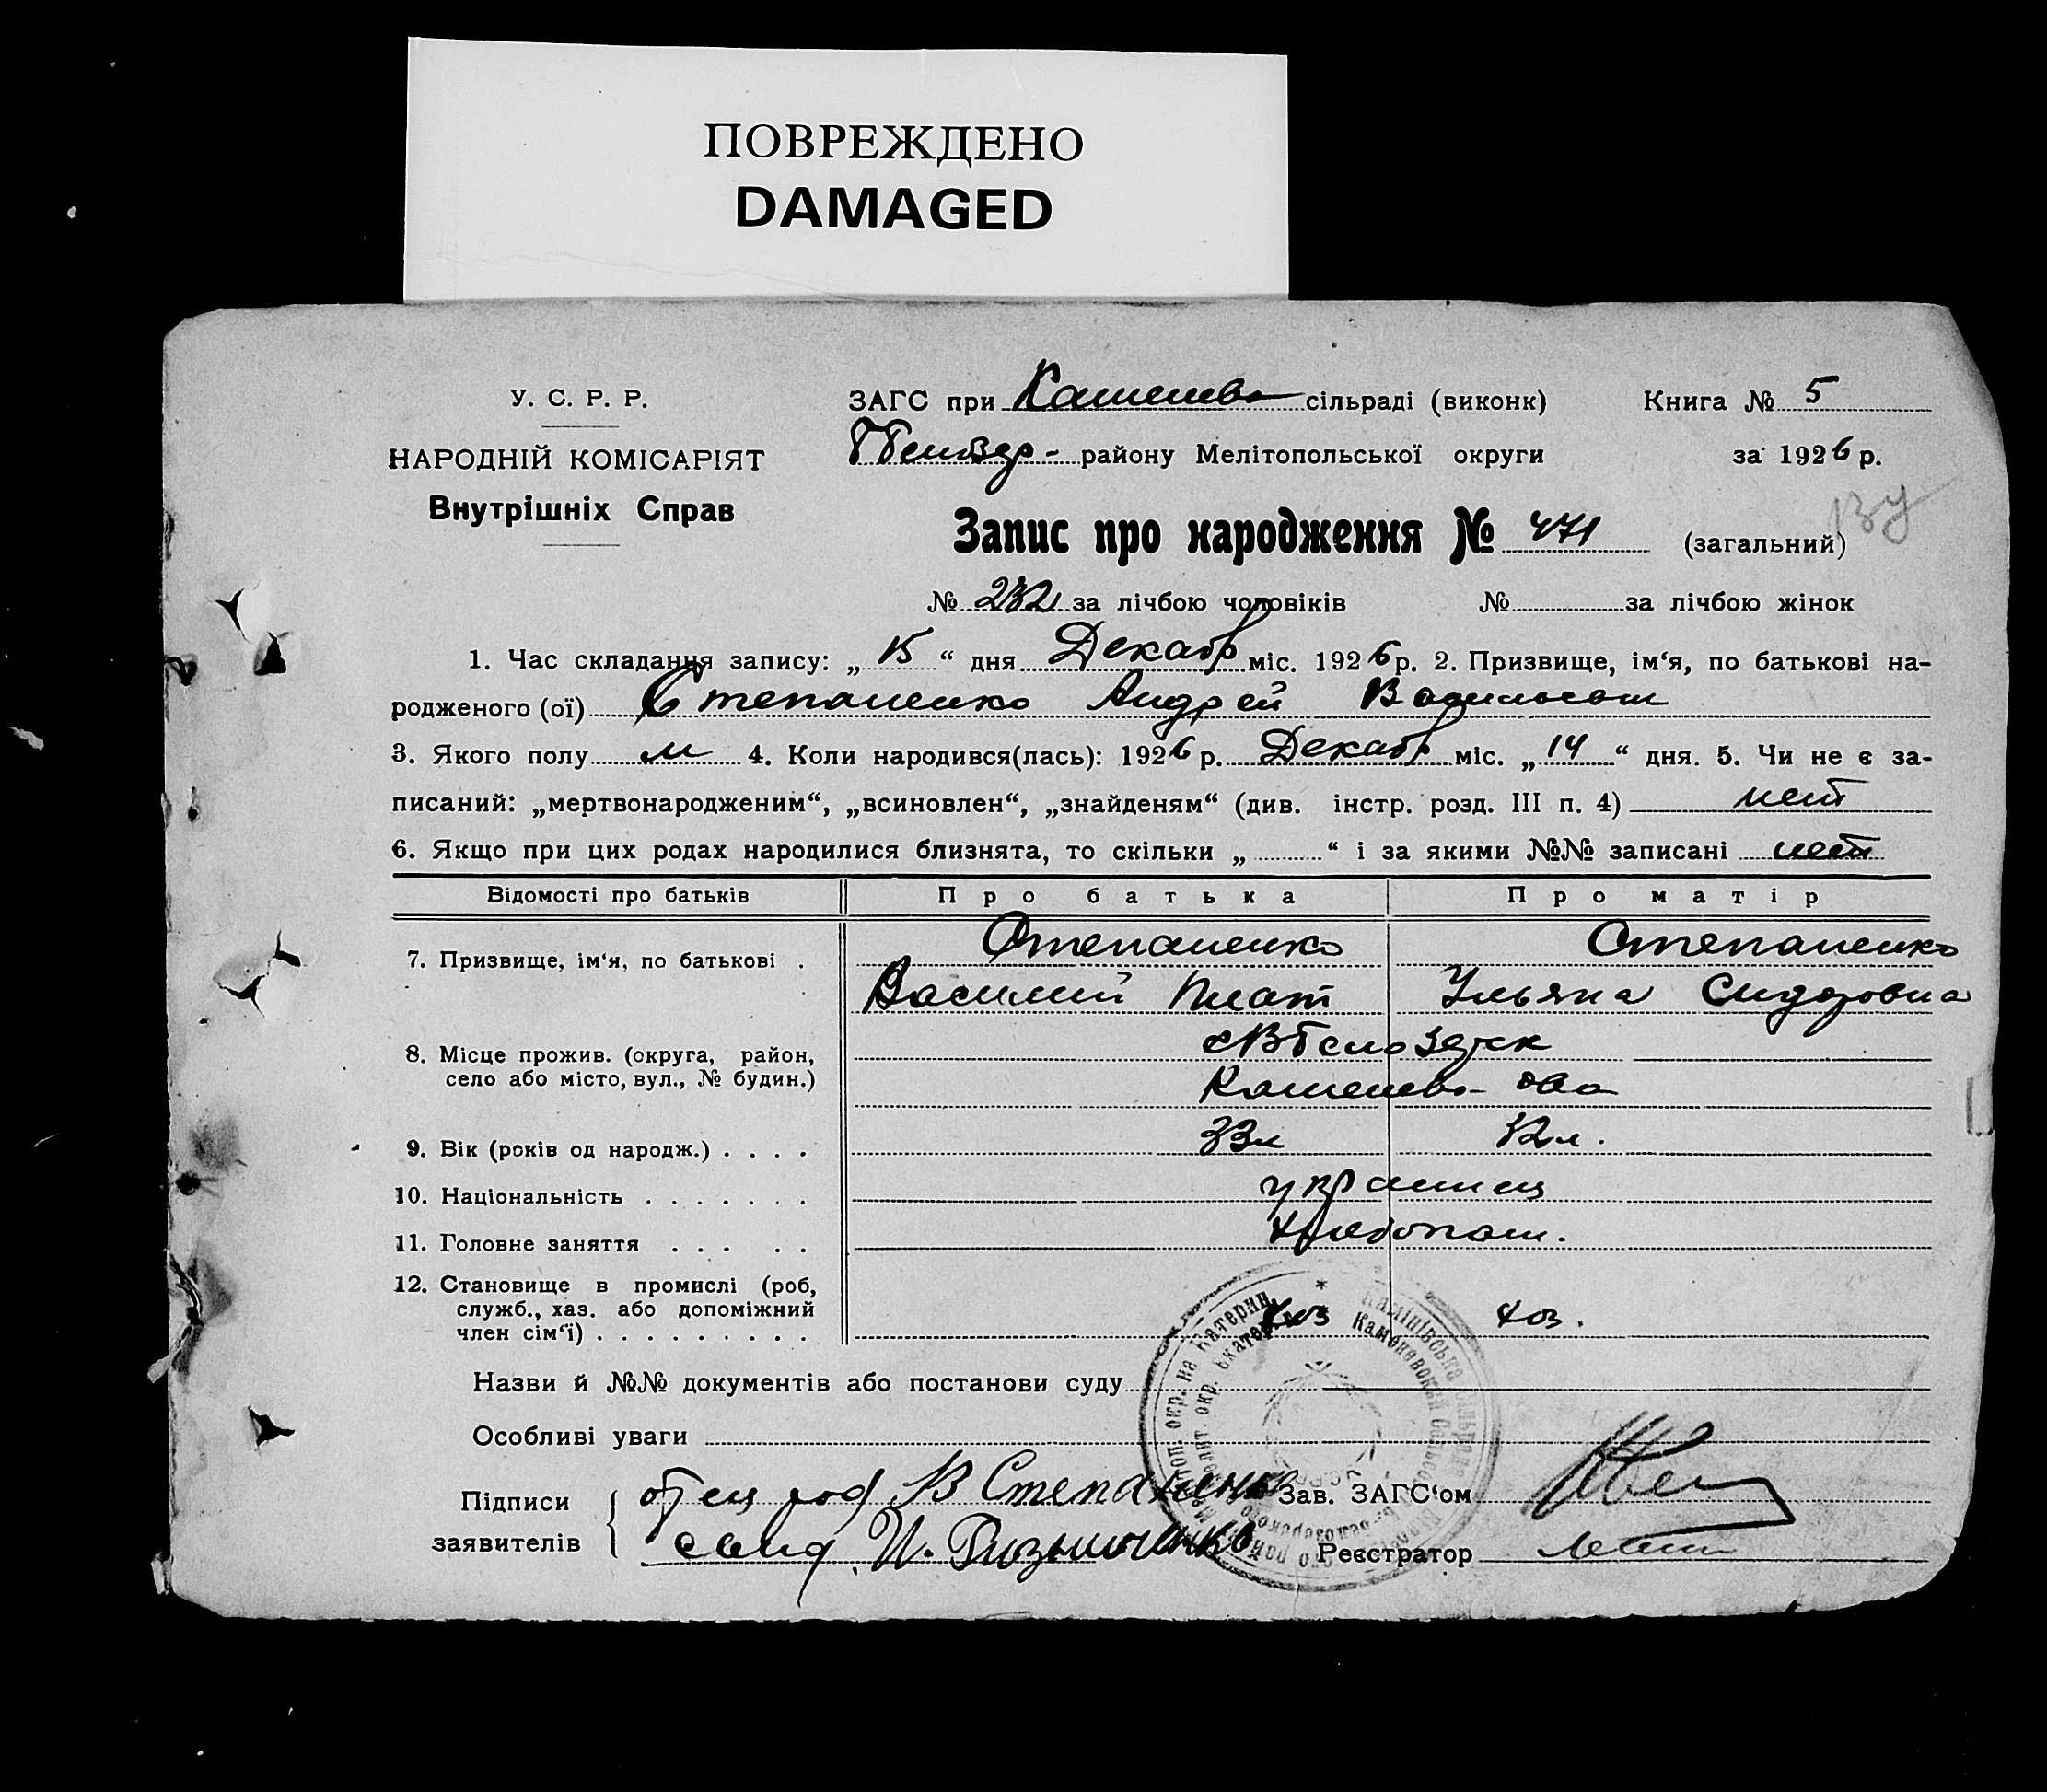 ПОВРЕЖДЕНО
DAMAGED
У. С. Р. Р.
НАРОДНІЙ КОМІСАРІЯТ
Внутрішніх Справ
ЗАГС при сільраді (виконк)
Книга № 5
району Мелітопольської округи
за 1926 р.
Запис про народження № 471 (загальний)
№ 232 за лічбою чоловіків № за лічбою жінок
1. Час складання запису: „ 15 “ дня Декабр міс. 1926 р. 2. Призвище, ім‘я, по батькові на-
родженого (ої) Степаненко Андрей
3. Якого полу м 4. Коли народився(лась): 1926 р. Декабр міс. „ 14 “ дня. 5. Чи не є за-
писаний: „мертвонародженим“, „всиновлен“, „знайденям“ (див. інстр. розд. III п. 4) нет
6. Якщо при цих родах народилися близнята, то скільки „ “ і за якими №№ записані нет
Відомості про батьків Про батька Про матір
7. Призвище, ім‘я, по батькові . Степаненко Степаненко
Василий Ульяна Сидоровна
8. Місце прожив. (округа, район,
село або місто, вул., № будин.)
9. Вік (років од народж.) . . . . 33л 32л.
10. Національність . . . . . . . украинец
11. Головне заняття . . . . . хлебопаш.
12. Становище в промислі (роб,
служб., хаз. або допоміжний
член сім‘ї) . . . . . . . . . хоз хоз.
Назви й №№ документів або постанови суду
Особливі уваги
Підписи
заявителів
отец В Степаненко
свид. И.
Зав. ЗАГС‘ом
Реєстратор